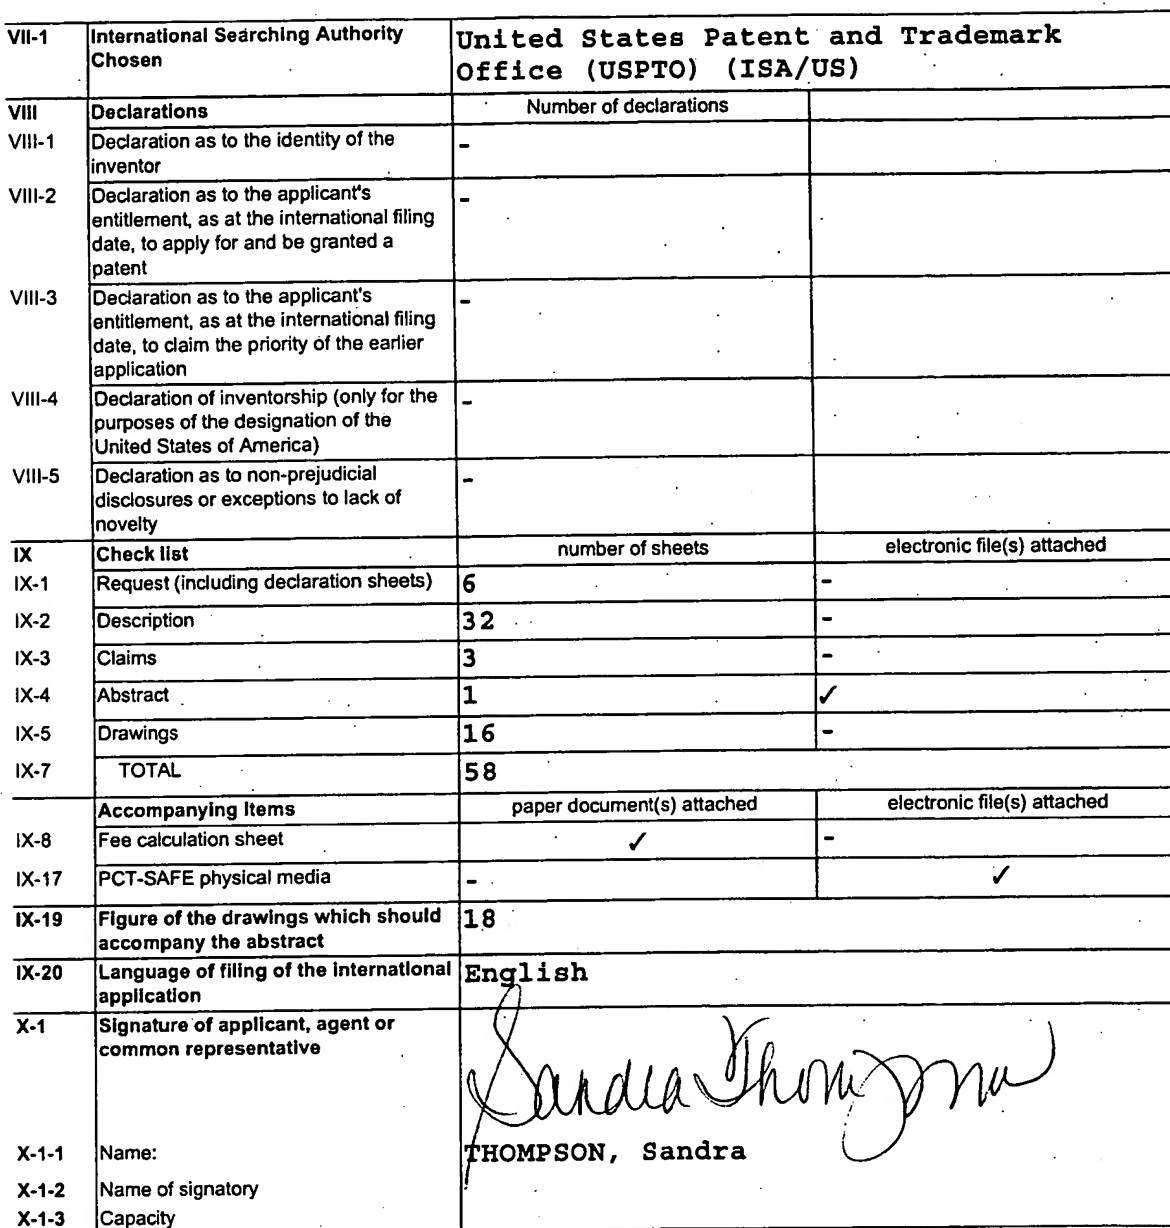 VII-1 International Searching Authority Chosen United States Patent and Trademark Office (USPTO) (ISA/US)
VIII Declarations Number of declarations
VIII-1 Declaration as to the identity of the inventor -
VIII-2 Declaration as to the applicant's entitlement, as at the international filing date, to apply for and be granted a patent -
VIII-3 Declaration as to the applicant's entitlement, as at the international filing date, to claim the priority of the earlier application -
VIII-4 Declaration of inventorship (only for the purposes of the designation of the United States of America) -
VIII-5 Declaration as to non-prejudicial disclosures or exceptions to lack of novelty -
IX Check list number of sheets electronic file(s) attached
IX-1 Request (including declaration sheets) 6 -
IX-2 Description 32 -
IX-3 Claims 3 -
IX-4 Abstract 1 ✓
IX-5 Drawings 16 -
IX-7 TOTAL 58
Accompanying Items paper document(s) attached electronic file(s) attached
IX-8 Fee calculation sheet ✓ -
IX-17 PCT-SAFE physical media - ✓
IX-19 Figure of the drawings which should accompany the abstract 18
IX-20 Language of filing of the international application English
X-1 Signature of applicant, agent or common representative Sandra Thompson
X-1-1 Name: THOMPSON, Sandra
X-1-2 Name of signatory
X-1-3 Capacity